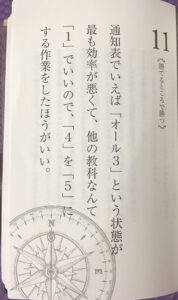 11
《勝てるところで勝つ》
通知表でいえば「オール3」という状態が
最も効率が悪くて、他の教科なんて
「1」でいいので、「4」を「5」に
する作業をしたほうがいい。